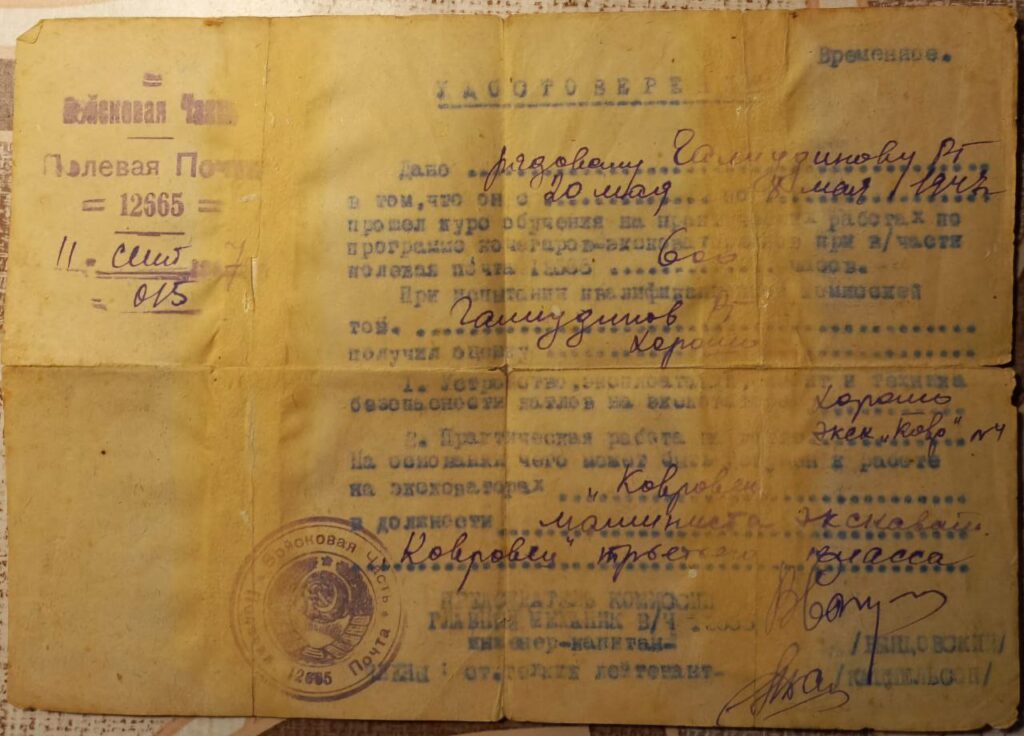 Временное.
УДОСТОВЕРЕ
Войсковая Часть
Полевая Почта
= 12665 =
11. сент 7
= 015
Дано .. рядовому Галиудинову РГ
в том, что он с 20 мая по мая 1947
прошел курс обучения на работах по
программе кочегаров-эксковат при в/части
полевая почта 12665 600 часов.
При испытании квалифика комиссией
тов. Галиудинов РГ
получил оценку хорошо
1. Устройство, эксплоатация, и техника
безопасности котлов на экско хорошо
2. Практическая работа экск. „Ково" №4
На основании чего может быть к работе
на эксковаторах „Ковровец
в должности машиниста экскават.
Ковровец" третьего класса
ПРЕДСЕДАТЕЛЬ КОМИССИИ
ГЛАВНЫЙ МЕХАНИК В/Ч
инженер-капитан-
ст.техник лейтенант-
Войсковая Часть * Полевая Почта
12665